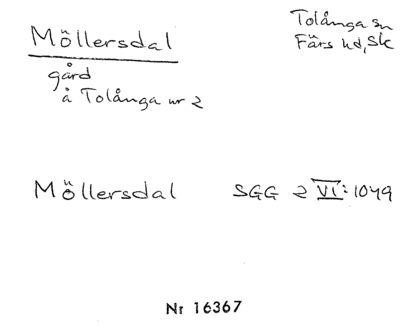 Möllersdal
Tolånga sn
Färs hd, Sk
gård
å Tolånga nr 2
Möllersdal SGG 2 VI: 1049
Nr 16367